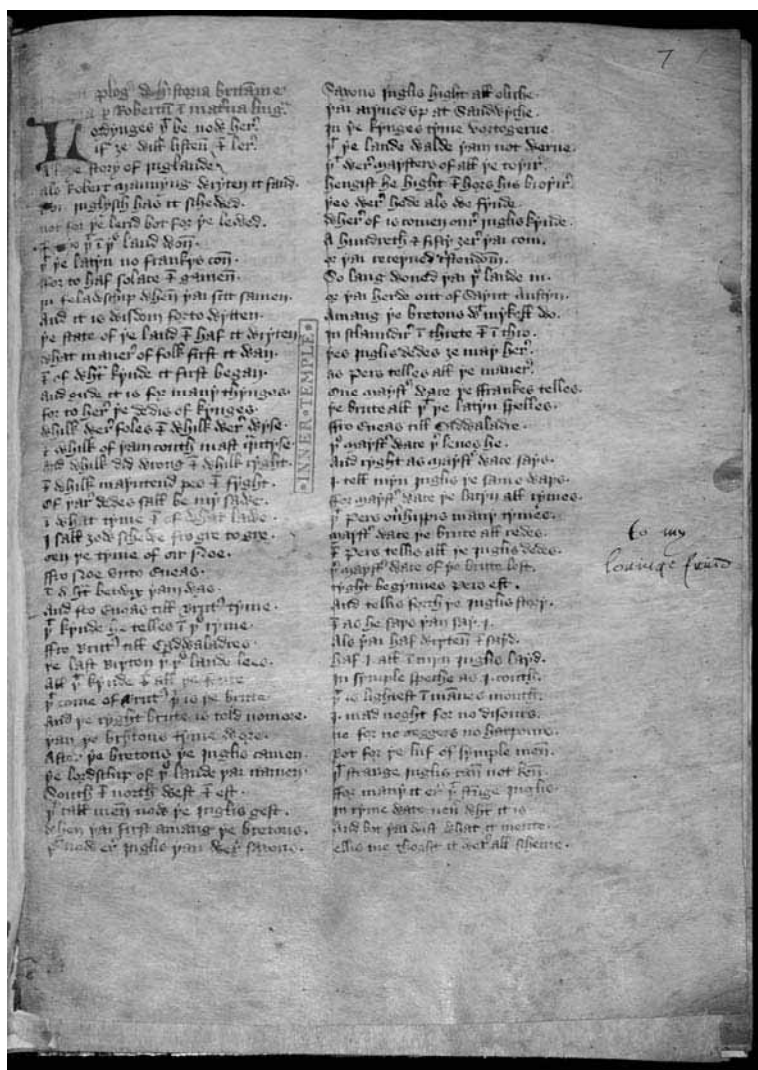 7
plog de hystoria britannie
p Robertū ī mat'na lingͣ
Lordynges þͭ be now her'
if ze will listen ⁊ ler'
All þe story of Inglande
als Robert Mannyng wryten it fand
⁊ on Inglysch has it schewed.
not for þe lerid bot for þe lewed.
ffor þo þͭ ī þis land won̄
þͭ þe latyn no frankys con̄
ffor to haf solace ⁊ gamen̄
In felawschip when þai sitt samen
And it is wisdom forto wytten
þe state of þe land ⁊ haf it wryten
what maner' of folk first it wan.
⁊ of wht kynde it first began.
And gude it is for many thynges
for to her' þe dedis of kynges.
whilk wer' foles ⁊ whilk wer' wyse.
⁊ whilk of þam couth mast quityse.
And whilk did wrong ⁊ whilk ryght.
⁊ whilk mayntend pes ⁊ fyght.
Of þar' dedes sall be my sawe.
ī what tyme ⁊ of what lawe.
I sall zow schewe fro gre to gre.
sen þe tyme of sir Noe.
ffro Noe vnto Eneas.
⁊ wht betwix þam was.
And fro Eneas till Brut' tyme.
þͭ kynde he telles ī þis ryme.
ffro Brut' till Cadwaladres
þe last Bryton þͭ þis lande lees.
All þͭ kynde ⁊ all þe frute
þͭ come of Brut' þͭ is þe brute
And þe ryght brute is told nomore.
þan þe brytons tyme wore.
After þe bretons þe Inglis camen.
þe lordschip of þis lande þai namen.
South ⁊ north west ⁊ est.
þͭ call men now þe Inglis gest.
when þai first amang þe bretons.
þͭ now er' Inglis þan wer' saxons.
Saxons Inglis hight all oliche.
þai aryued vp at Sandwyche.
In þe kynges tyme vortogerne
þͭ þe lande walde þam not werne.
þͭ wer' maysters of all þe toþir'.
hengist he hight ⁊ hors his broþir'.
þes wer' hede als we fynde.
wher' of is comen our' Inglis kynde.
A hundreth ⁊ fifty zer' þai com.
or þai receyued c'stendom.
So lang woned þai þis lande in.
or þai herde out of Saynt Austyn.
Amang þe bretons wt mykell wo.
In sklaundir' ī threte ⁊ ī thro.
þes Inglis dedes ze may her'.
as Pers telles all þe maner'.
One mayst' wace þe ffrankes telles
þe brute all þͭ þe latyn spelles.
ffro Eneas till Cadwaladre.
þis mayst' wace þer leues he.
And ryght as mayst' wace says.
I tell myn Inglis þe same ways.
ffor mayst' wace þe latyn all rymes.
þͭ Pers ou'hippis many tymes.
mayst' wace þe brute all redes.
⁊ Pers tellis all þe Inglis dedes.
þer mayst' wace of þe brute left.
ryght begynnes pers eft.
And tellis forth þe Inglis story.
⁊ as he says þan say .I.
Als þai haf wryten ⁊ sayd.
haf .I. all ī myn Inglis layd.
In symple speche as I couth.
þͭ is lightest ī mānes mouth.
I. mad noght for no disours.
ne for no seggers no harpours.
Bot for þe luf of symple men̄.
þͭ strange Inglis can not ken̄.
ffor many it er' þͭ st'nge Inglis
In ryme wate neu' wht it is
And bot þai wist what it mente.
ellis me thoght it wer' all schente.
INNER TEMPLE
to my
louinge frind